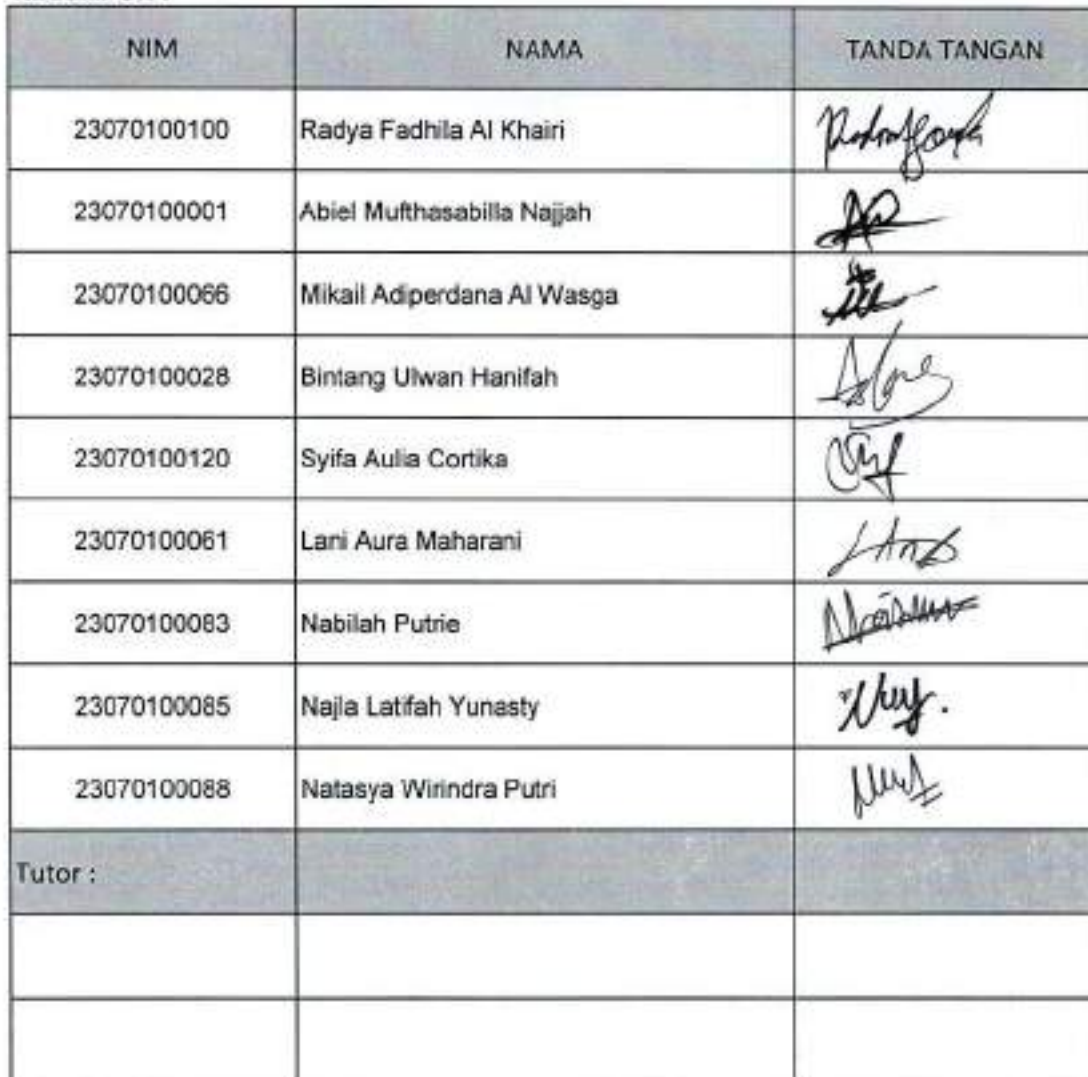 NIM NAMA TANDA TANGAN
23070100100 Radya Fadhila Al Khairi
23070100001 Abiel Mufthasabilla Najjah
23070100066 Mikail Adiperdana Al Wasga
23070100028 Bintang Ulwan Hanifah
23070100120 Syifa Aulia Cortika
23070100061 Lani Aura Maharani
23070100083 Nabilah Putrie
23070100085 Najla Latifah Yunasty
23070100088 Natasya Wirindra Putri
Tutor :